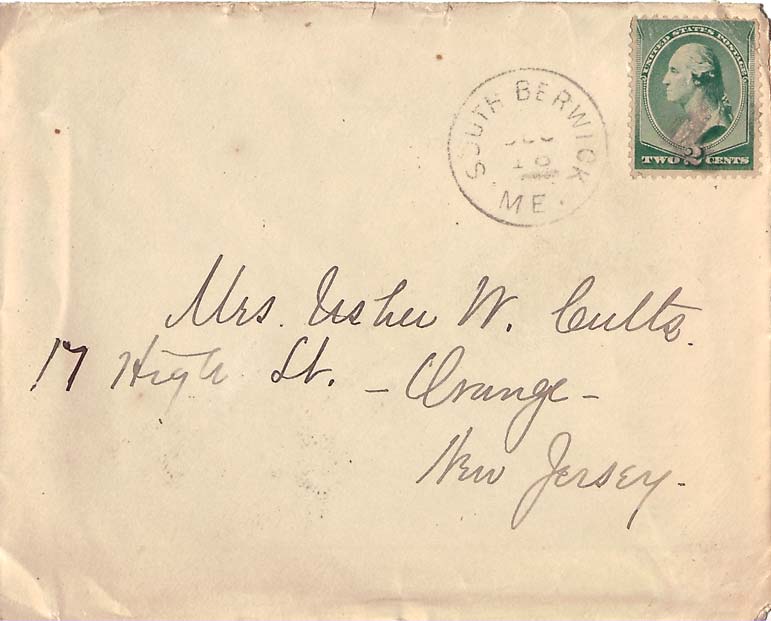 SOUTH BERWICK
ME.
UNITED STATES POSTAGE
TWO 2 CENTS
Mrs. Usher W. Cutts.
17 High St. - Orange -
New Jersey.